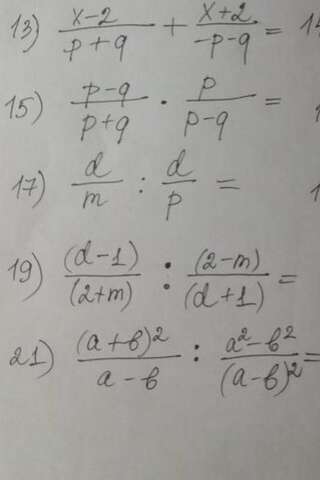 13) (x-2)/(p+q) + (x+2)/(-p-q) = 14
15) (p-q)/(p+q) · p/(p-q) = 1
17) d/m : d/p = 1
19) (d-1)/(2+m) : (2-m)/(d+1) =
21) (a+b)²/(a-b) : (a²-b²)/(a-b)² =